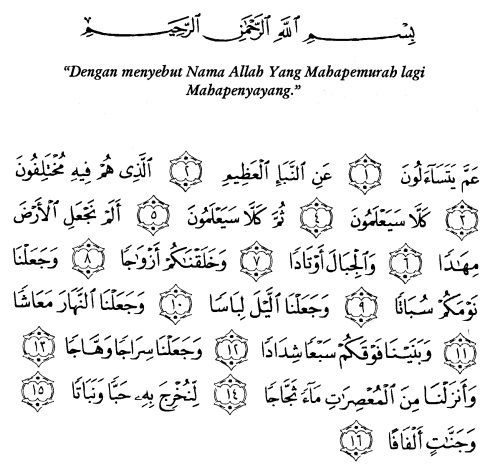 بِسْمِ اللَّهِ الرَّحْمَٰنِ الرَّحِيمِ
“Dengan menyebut Nama Allah Yang Mahapemurah lagi
Mahapenyayang.”
عَمَّ يَتَسَاءَلُونَ ١ عَنِ النَّبَإِ الْعَظِيمِ ٢ الَّذِي هُمْ فِيهِ مُخْتَلِفُونَ
٣ كَلَّا سَيَعْلَمُونَ ٤ ثُمَّ كَلَّا سَيَعْلَمُونَ ٥ أَلَمْ نَجْعَلِ الْأَرْضَ
مِهَٰدًا ٦ وَالْجِبَالَ أَوْتَادًا ٧ وَخَلَقْنَٰكُمْ أَزْوَٰجًا ٨ وَجَعَلْنَا
نَوْمَكُمْ سُبَاتًا ٩ وَجَعَلْنَا الَّيْلَ لِبَاسًا ١٠ وَجَعَلْنَا النَّهَارَ مَعَاشًا
١١ وَبَنَيْنَا فَوْقَكُمْ سَبْعًا شِدَادًا ١٢ وَجَعَلْنَا سِرَاجًا وَهَّاجًا ١٣
وَأَنزَلْنَا مِنَ الْمُعْصِرَٰتِ مَاءً ثَجَّاجًا ١٤ لِّنُخْرِجَ بِهِۦ حَبًّا وَنَبَاتًا ١٥
وَجَنَّٰتٍ أَلْفَافًا ١٦